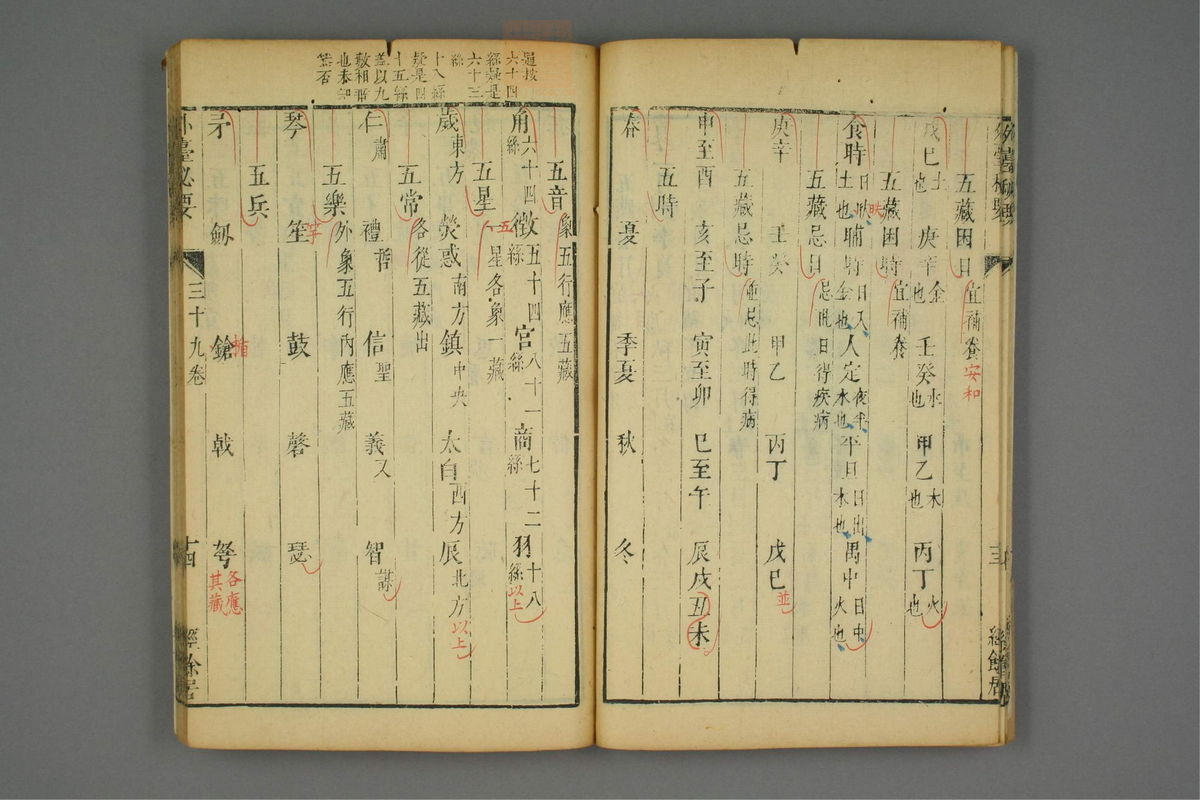 五藏困日宜補養安和
戊巳土也 庚辛金也 壬癸水也 甲乙木也 丙丁火也
五藏困時宜補養
食時日昳土也 晡時日入金也 人定夜半水也 平旦日出木也 禺中日中火也
昳
五藏忌日忌此日得疾病
庚辛 壬癸 甲乙 丙丁 戊巳並
五藏忌時並忌此時得病
申至酉 亥至子 寅至卯 巳至午 辰戌丑未
五時
春 夏 季夏 秋 冬
六十四
絲疑是
六十三
絲
十八絲
疑是四
十五絲
蓋以九
數相
也未知
是否
五音象五行應五藏
角六十四絲 徵五十四絲 宮八十一絲 商七十二絲 羽十八絲以上
五星五星各象一藏
歲東方 熒惑南方 鎮中央 太白西方 辰北方以上
五常各從五藏出
仁肅 禮哲 信聖 義乂 智謀
五樂外象五行內應五藏
琴 笙 鼓 磬 瑟
竽
五兵
矛 劔 鎗 戟 弩各應其藏
楯
外臺秘要 三十九卷 十四 經餘居